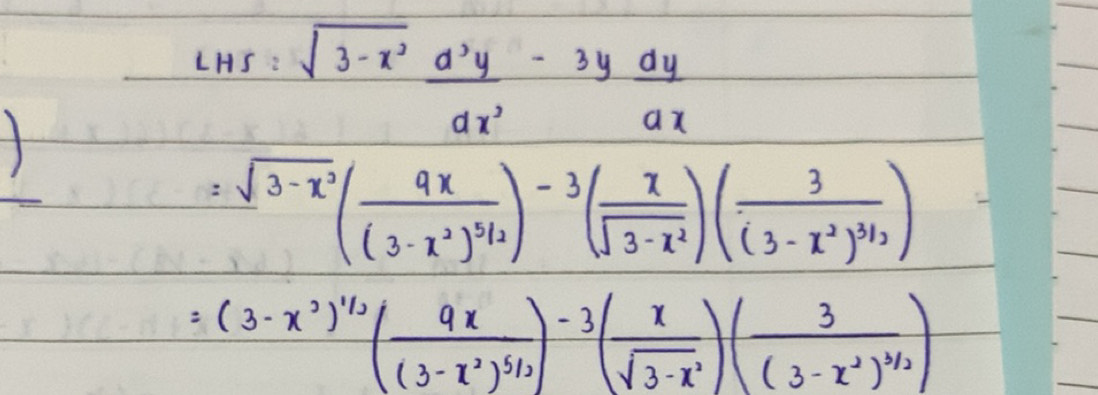 LHS : √(3-x²) d²y/dx² - 3y dy/dx
= √(3-x²) (9x/(3-x²)^(5/2)) - 3(x/√(3-x²))(3/(3-x²)^(3/2))
= (3-x²)^(1/2) (9x/(3-x²)^(5/2)) - 3(x/√(3-x²))(3/(3-x²)^(3/2))